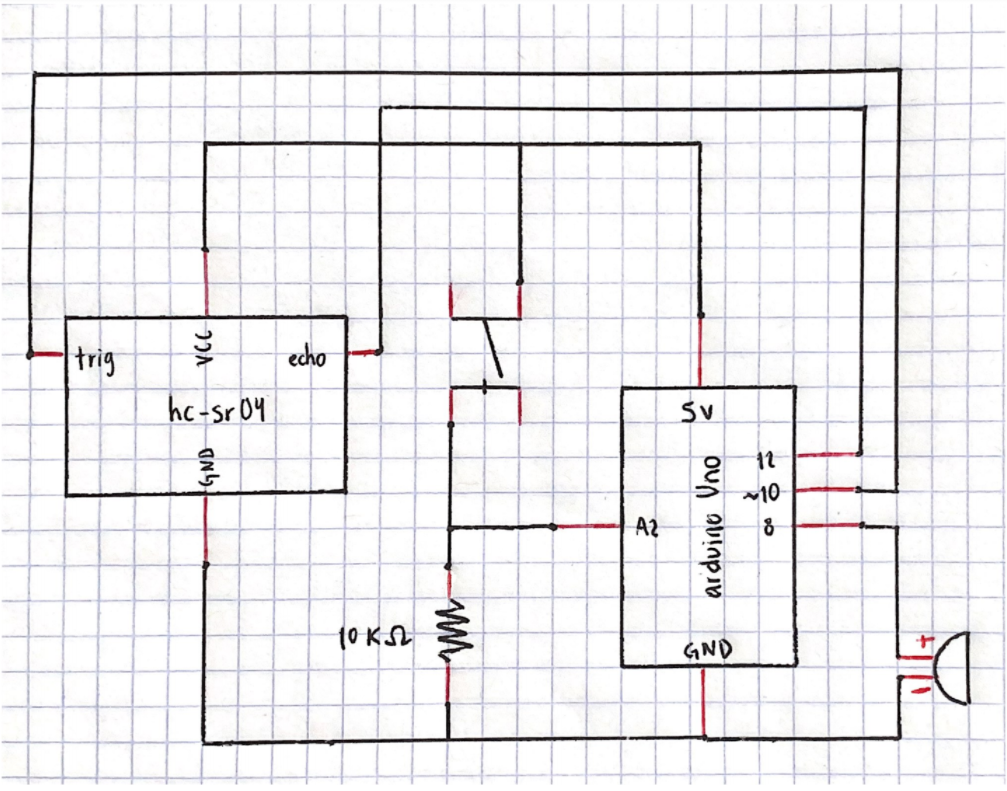 trig
VCC
echo
hc-sr04
GND
10KΩ
5V
12
~10
8
A2
arduino Uno
GND
+
-